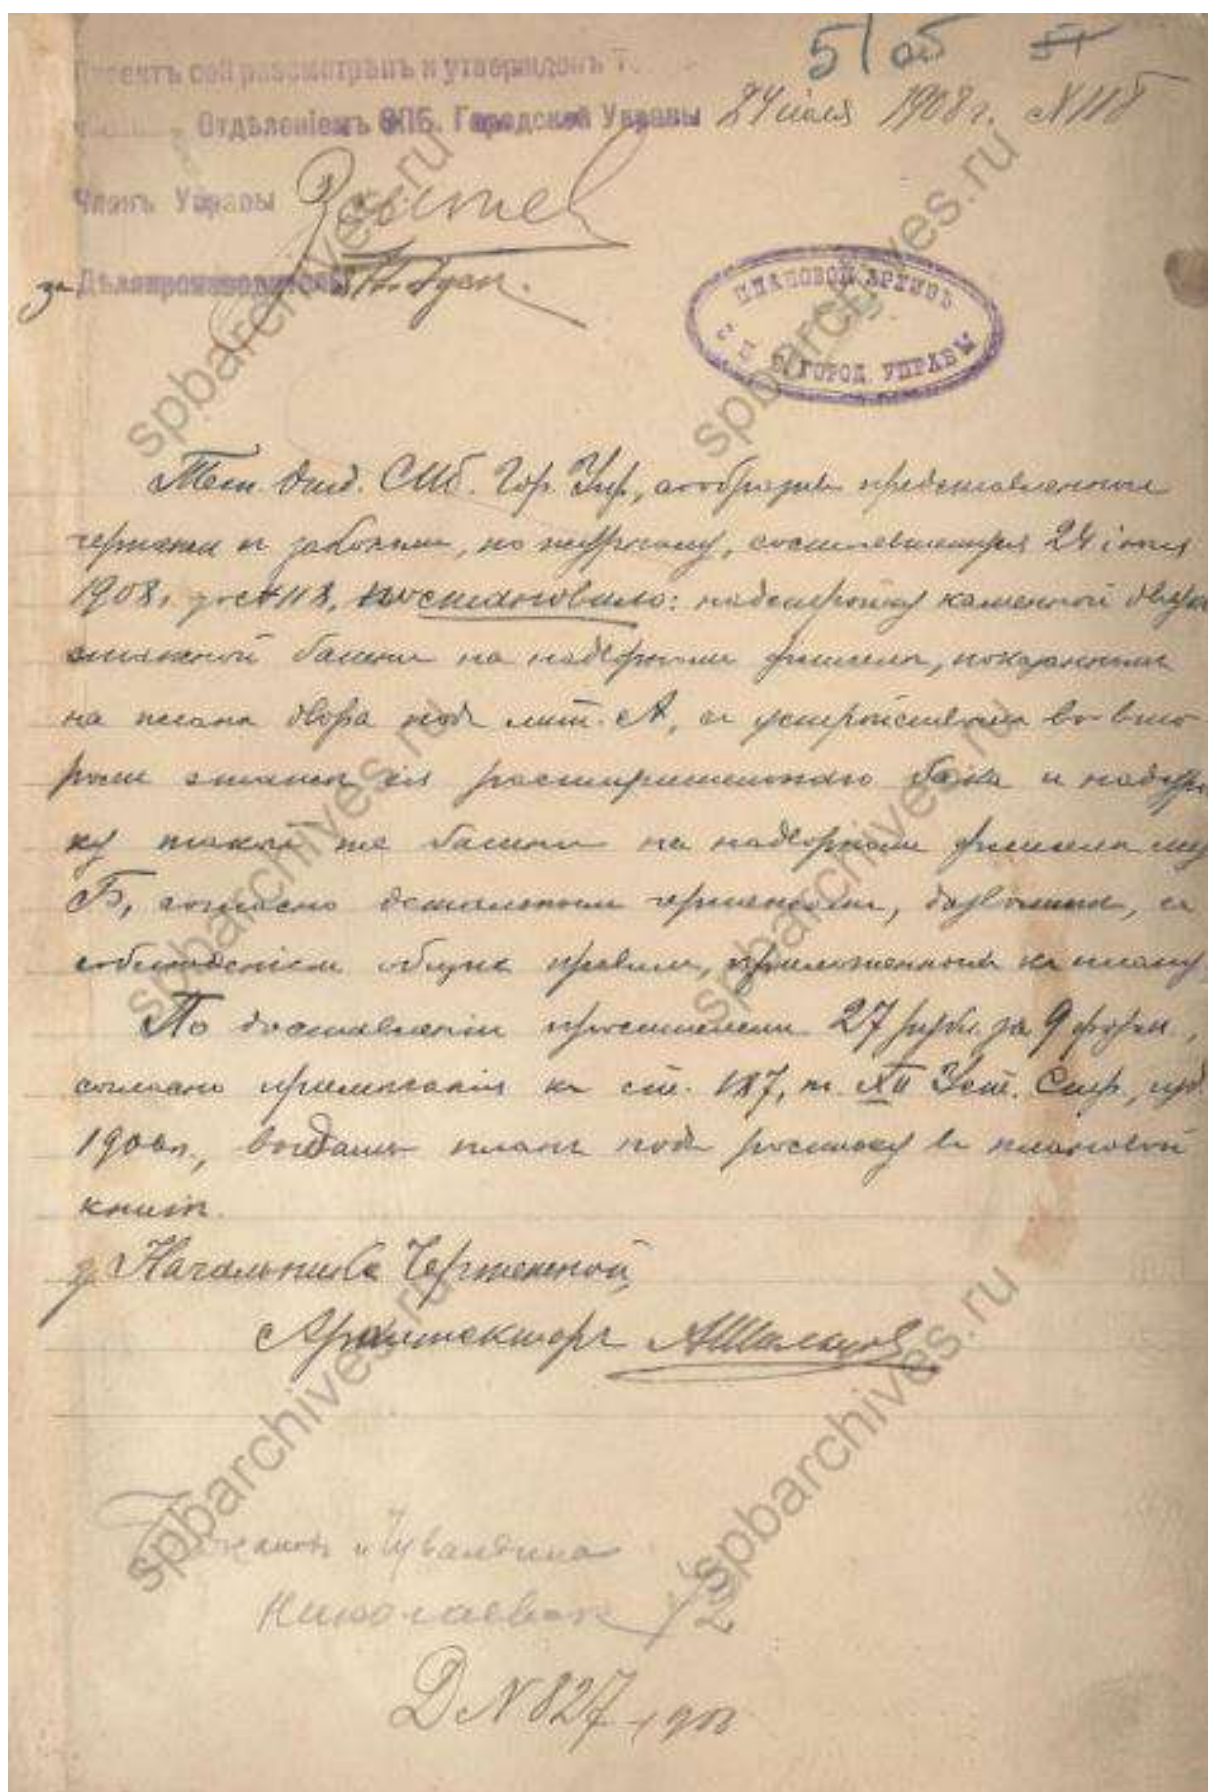 5/05 51
Проектъ сей разсмотрѣнъ и утвержденъ Т.
Отдѣленіемъ СПБ. Городской Управы 24 іюля 1908 г. №118
Членъ Управы
за Дѣлопроизводителя
ПЛАНОВОЙ АРХИВЪ
С. П. Б. ГОРОД. УПРАВЫ
Техн. Отд. СПб. Гор. Упр., сообразивъ представленные
чертежи съ законами, по журналу, состоявшемуся 24 іюля
1908 г. за №118, постановило: надстройку каменной двухъ
этажной башни на надворномъ флигелѣ, показанномъ
на планѣ двора подъ лит. А, съ устройствомъ во вто
ромъ этажѣ ея расширительнаго бака и надстрой
ку такой же башни на надворномъ флигелѣ лит
Б, согласно детальнымъ чертежамъ, дозволить, съ
соблюденіемъ общихъ правилъ, приложенныхъ къ плану.
По доставленіи просителемъ 27 руб. за 9 форм.,
согласно примѣчанія къ ст. 187, т. XII Уст. Стр., изд.
1900 г., выдать планъ подъ росписку въ плановой
книгѣ.
Начальника Чертежной,
Архитекторъ
и Чуваldина
Николаевская 1/2
Д №827 - 1908
spbarchives.ru
spbarchives.ru
spbarchives.ru
spbarchives.ru
spbarchives.ru
spbarchives.ru